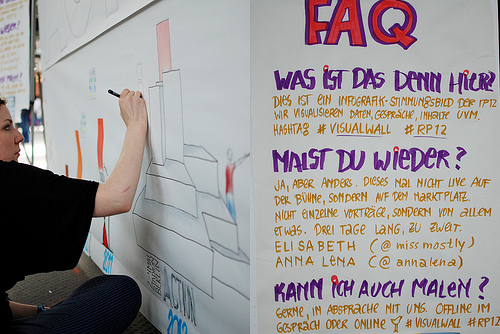 FAQ
WAS IST DAS DENN HIER?
DIES IST EIN INFOGRAFIK-STIMMUNGSBILD DER RP12
WIR VISUALISIEREN DATEN, GESPRÄCHE, INHALTE UVM.
HASHTAG #VISUALWALL #RP12
MALST DU WIEDER?
JA, ABER ANDERS. DIESES MAL NICHT LIVE AUF
DER BÜHNE, SONDERN AUF DEM MARKTPLATZ.
NICHT EINZELNE VORTRÄGE, SONDERN VON ALLEM
ETWAS. DREI TAGE LANG, ZU ZWEIT.
ELISABETH (@missmostly)
ANNA LENA (@annalena)
KANN ICH AUCH MALEN?
GERNE, IN ABSPRACHE MIT UNS. OFFLINE IM
GESPRÄCH ODER ONLINE #VISUALWALL #RP12
ACTION
2012
2011